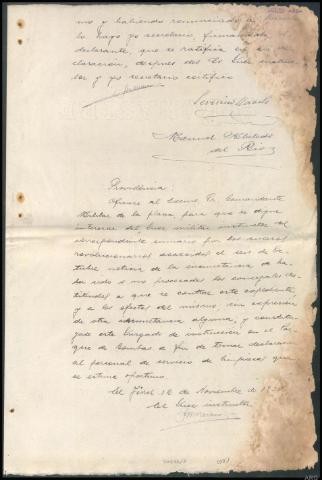 mo y habiendo renunciado a
lo hago yo secretario firmando el
declarante, que se ratifica en su de-
claración, despues del Sr Juez instruc-
tor y yo secretario certifico
Severino
Manuel
del Rio
Providencia:
Oficiese al Excmo. Sr. Comandante
Militar de la plaza, para que se digne
interesar del Juez militar instructor del
correspondiente sumario por los sucesos
revolucionarios acaecidos el seis de Oc-
tubre noticia de la circunstancia de ha-
ber sido o no procesados los concejales des-
tituidos a que se contrae este expediente,
y a los efectos del mismo, con expresión
de otra circunstancia alguna, y constitú-
yase este Juzgado de instrucción en el Par-
que de bombas a fin de tomar declaración
al personal de servicio de limpieza que
se estime oportuno.
El Ferrol 12 de Noviembre de 193
El Juez instructor